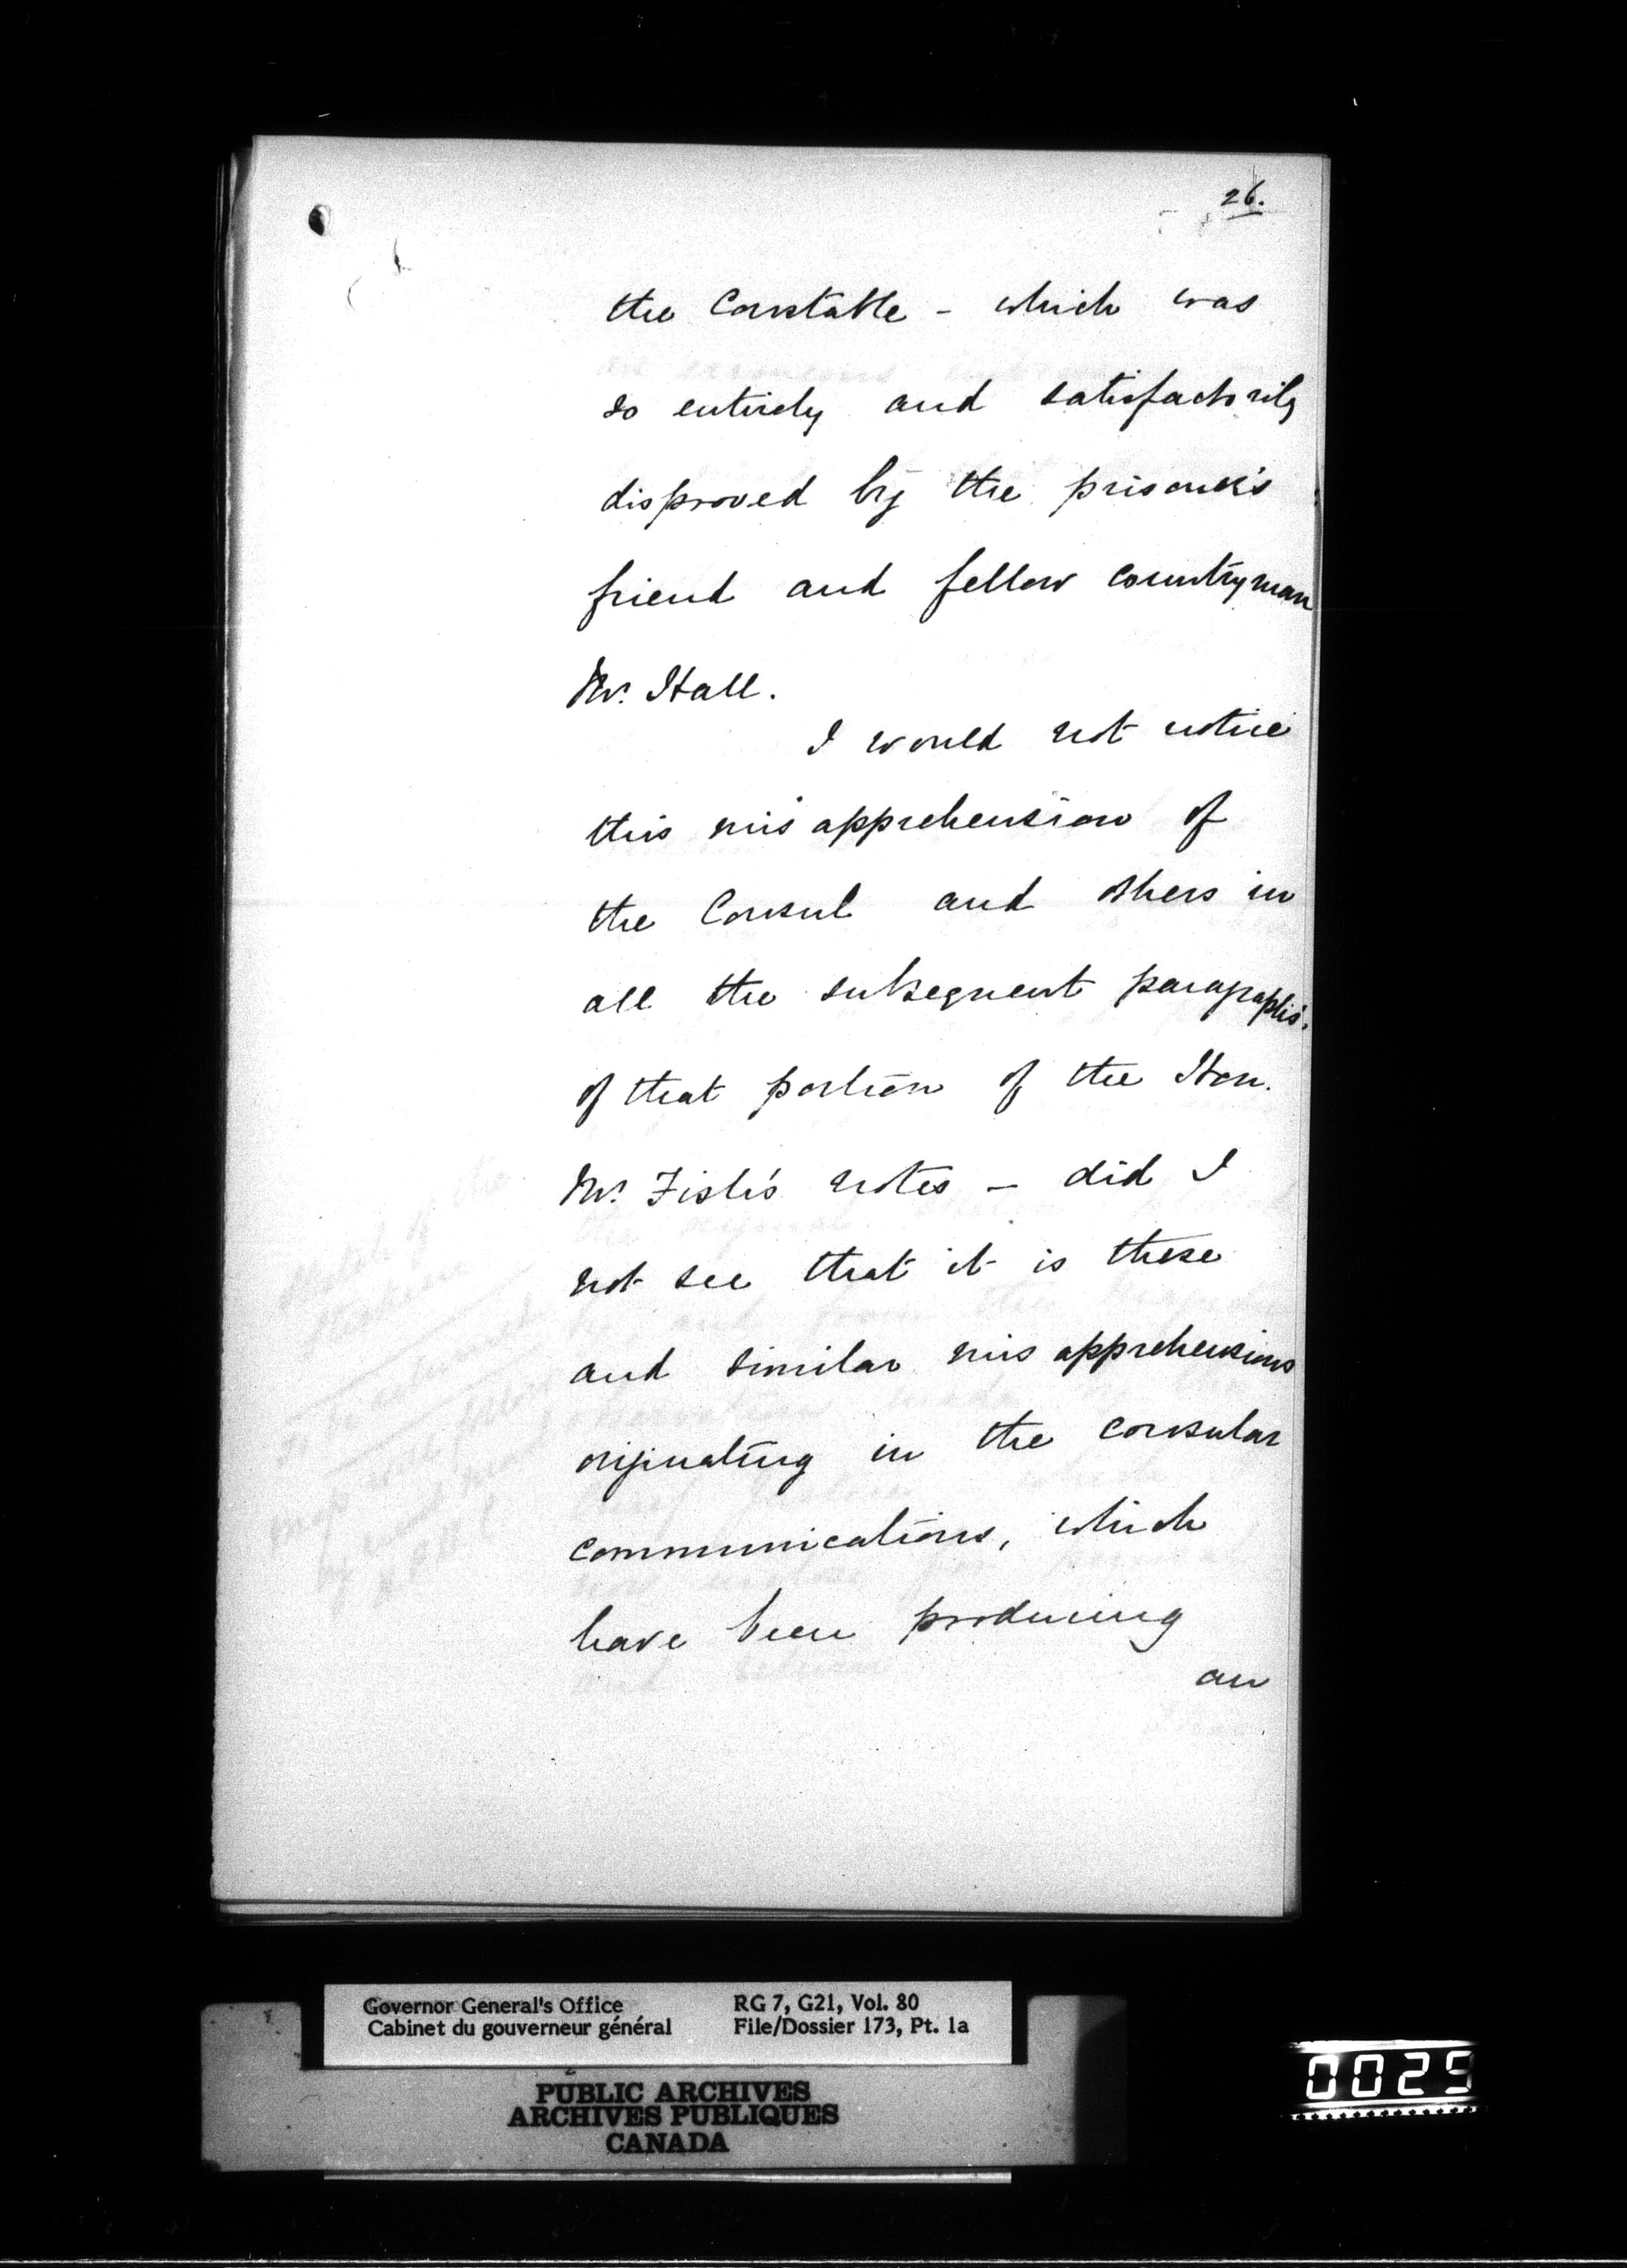 26.
the Constable - which was
so entirely and satisfactorily
disproved by the prisoner's
friend and fellow countryman
Mr. Hall.
I would not notice
this misapprehension of
the Consul and others in
all the subsequent paragraphs
of that portion of the Hon.
Mr. Fish's notes - did I
not see that it is these
and similar misapprehensions
originating in the consular
communications, which
have been producing
an
Governor General's Office
Cabinet du gouverneur général
RG 7, G21, Vol. 80
File/Dossier 173, Pt. 1a
PUBLIC ARCHIVES
ARCHIVES PUBLIQUES
CANADA
0025